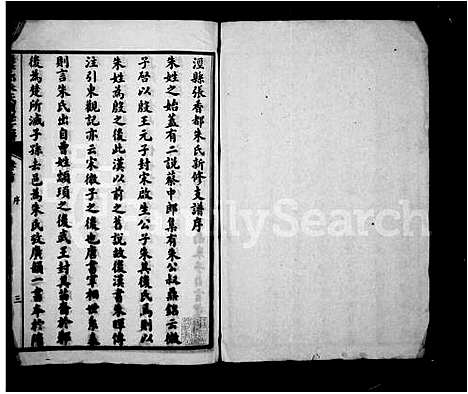 涇縣張香都朱氏新修支譜序
朱姓之始蓋有二說蔡中郎集有朱公叔鼎銘云微
子啓以殷王元子封宋啟生公子朱其後氏焉則以
朱姓為殷之後此漢以前之舊說故後漢書朱暉傳
注引東觀記亦云宋微子之後也唐書宰相世系表
則言朱氏出自曹姓顓頊之後武王封其苗裔於邾
後為楚所滅子孫去邑為朱氏攷廣韻一書本於隋
序
三
FamilySearch